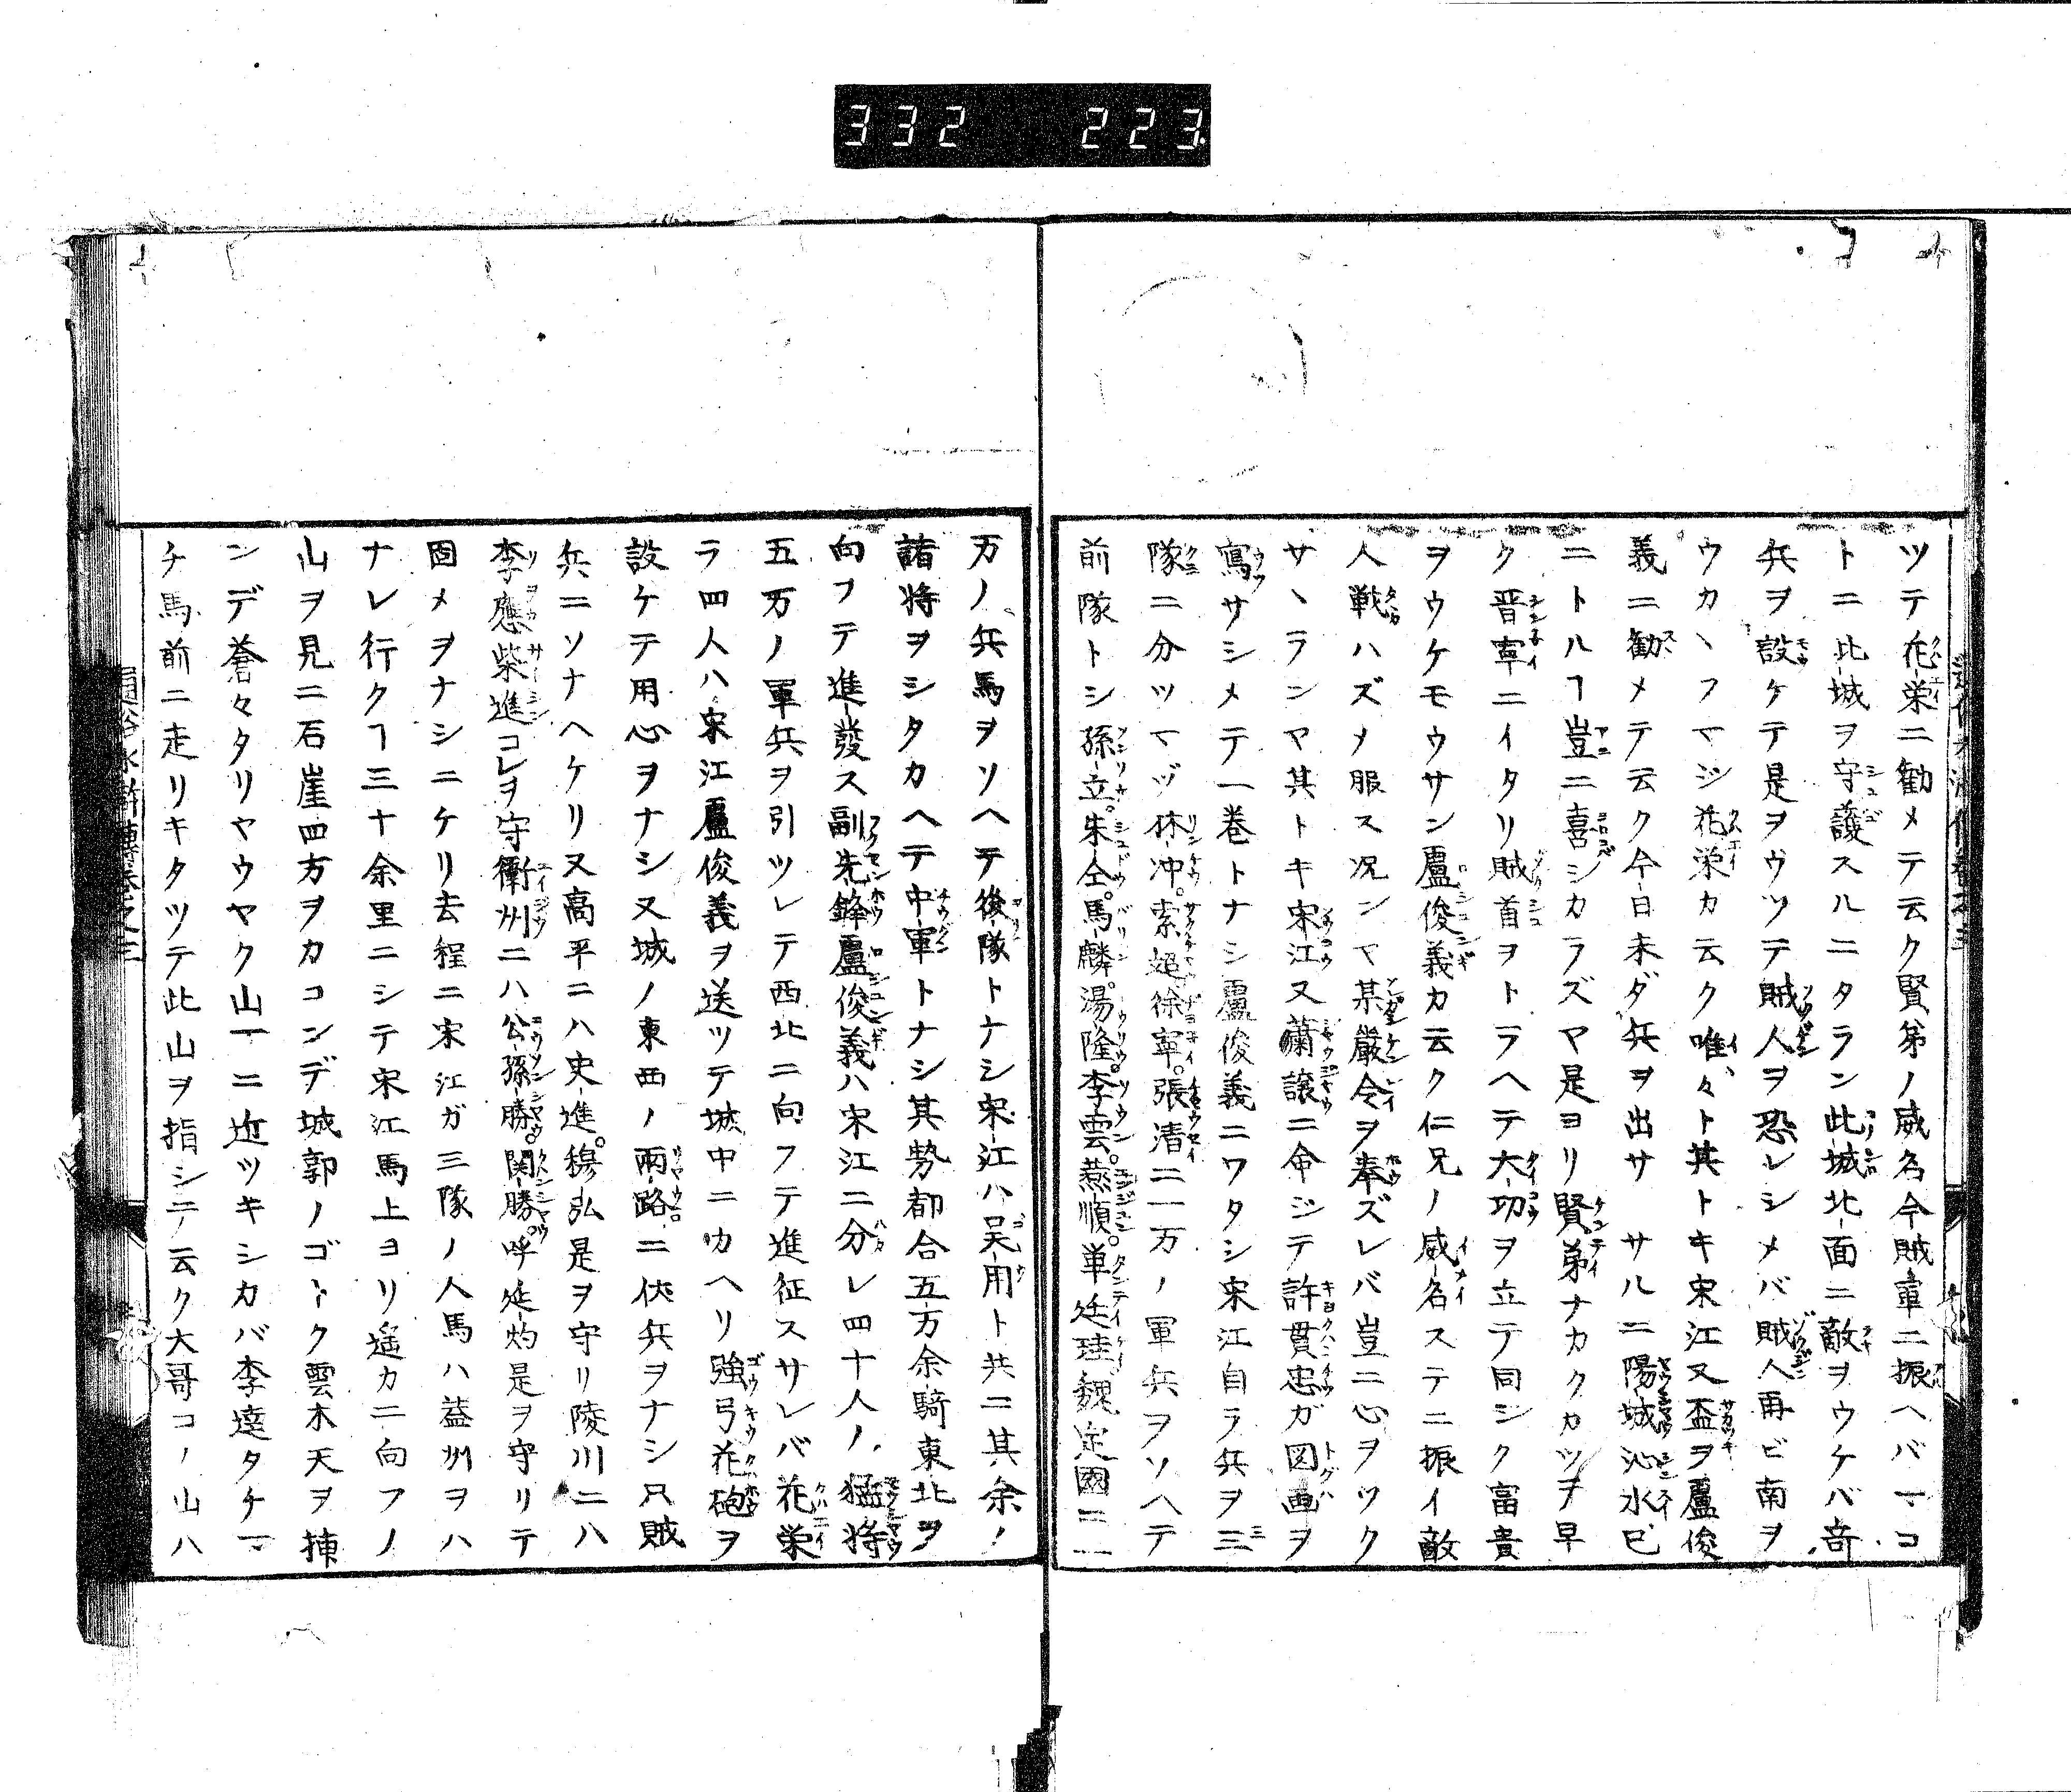 332 223
ツテ花栄ニ勸メテ云ク賢弟ノ威名今賊軍ニ振ヘバマコ
トニ此城ヲ守護スルニタラン此城北面ニ敵ヲウケバ奇
兵ヲ設ケテ是ヲウツテ賊人ヲ恐レシメバ賊人再ビ南ヲ
ウカヽフマジ花栄カ云ク唯々ト其トキ宋江又盃ヲ盧俊
義ニ勸メテ云ク今日未ダ兵ヲ出サ サルニ陽城沁水已
ニトルヿ豈ニ喜シカラズヤ是ヨリ賢弟ナカクカツヲ早
ク晋寧ニイタリ賊首ヲトラヘテ大功ヲ立テ同シク富貴
ヲウケモウサン盧俊義カ云ク仁兄ノ威名ステニ振イ敵
人戰ハズメ服ス况ンヤ某嚴令ヲ奉ズレバ豈ニ心ヲツク
サヽランヤ其トキ宋江又蕭讓ニ命ジテ許貫忠ガ図画ヲ
寫サシメテ一巻トナシ盧俊義ニワタシ宋江自ラ兵ヲ三
隊ニ分ツマヅ林冲。索超徐寧。張清ニ一万ノ軍兵ヲソヘテ
前隊トシ孫立。朱仝。馬麟。湯隆。李雲。燕順。単廷珪魏定國ニ一
万ノ兵馬ヲソヘテ後隊トナシ宋江ハ呉用ト共ニ其余ノ
諸将ヲシタカヘテ中軍トナシ其勢都合五万余騎東北ヲ
向フテ進發ス副先鋒盧俊義ハ宋江ニ分レ四十人ノ猛将
五万ノ軍兵ヲ引ツレテ西北ニ向フテ進征スサレバ花栄
ラ四人ハ宋江盧俊義ヲ送ツテ城中ニカヘリ強弓花砲ヲ
設ケテ用心ヲナシ又城ノ東西ノ兩路ニ伏兵ヲナシ只賊
兵ニソナヘケリ又高平ニハ史進。穆弘是ヲ守リ陵川ニハ
李應柴進コレヲ守衛州ニハ公孫勝。関勝。呼延灼是ヲ守リテ
固メヲナシニケリ去程ニ宋江ガ三隊ノ人馬ハ益州ヲハ
ナレ行クヿ三十余里ニシテ宋江馬上ヨリ遥カニ向フノ
山ヲ見ニ石崖四方ヲカコンデ城郭ノゴトク雲木天ヲ挿
ンデ蒼々タリヤウヤク山下ニ近ツキシカバ李逵タチマ
チ馬前ニ走リキタツテ此山ヲ指シテ云ク大哥コノ山ハ
通俗水滸傳巻之三